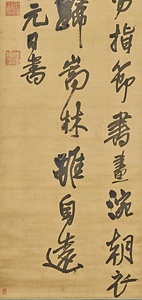 指節書畫朝衣
歸嵩林雖自遠
元日書